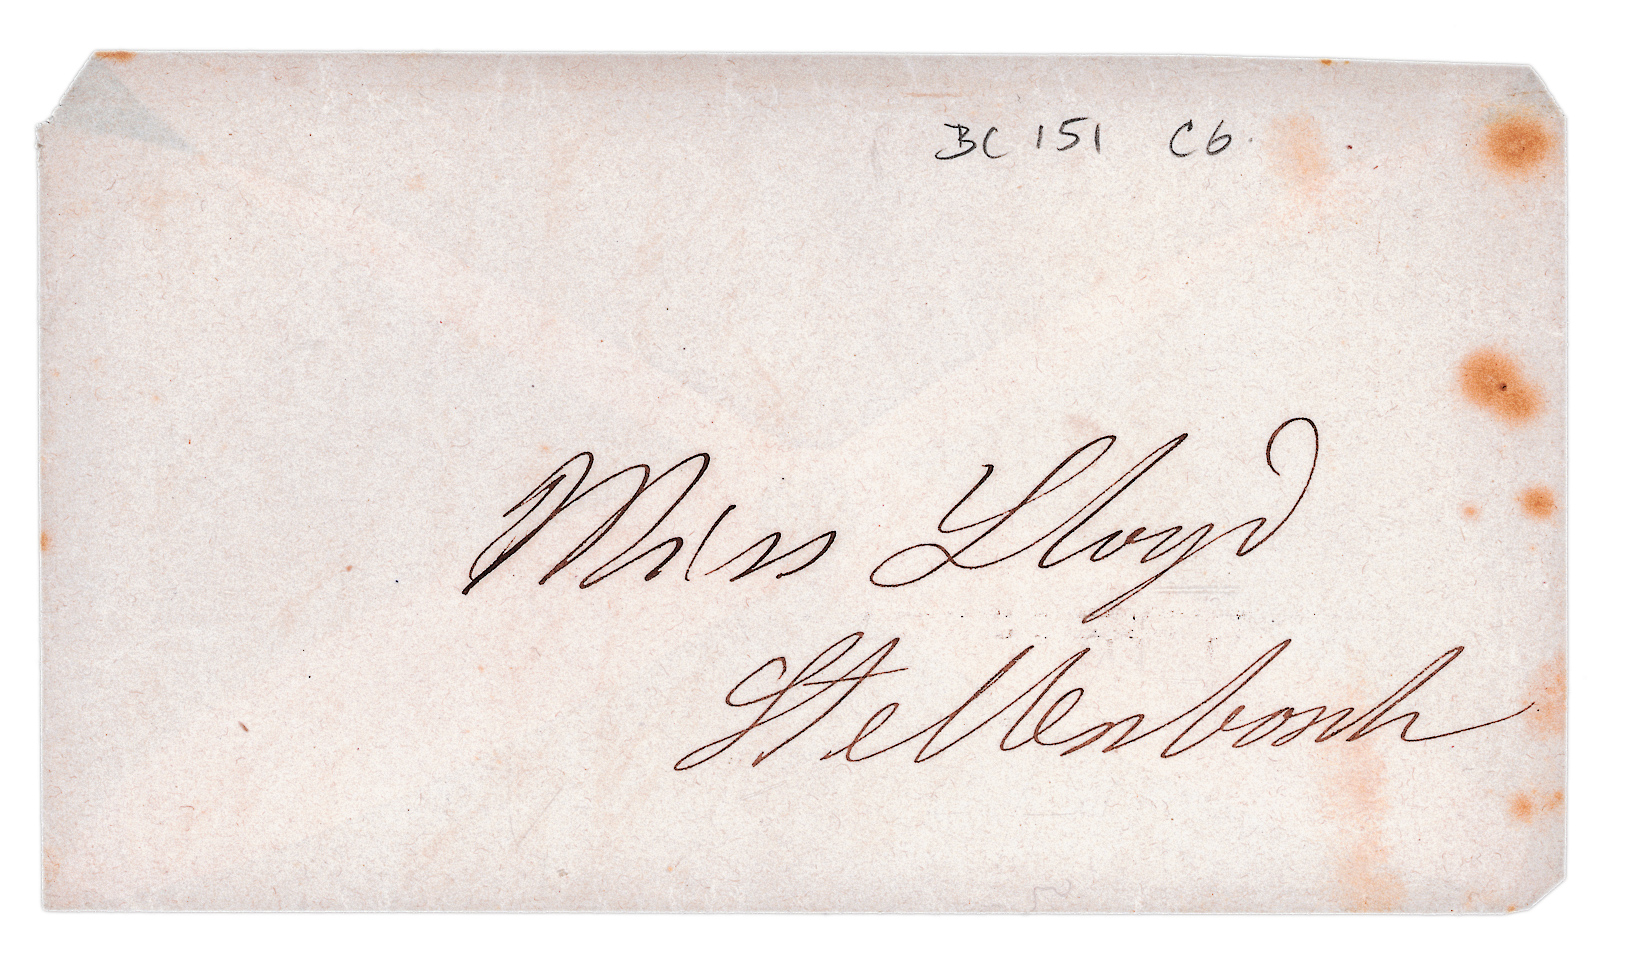 BC 151 C6.
Miss Lloyd
Stellenbosch